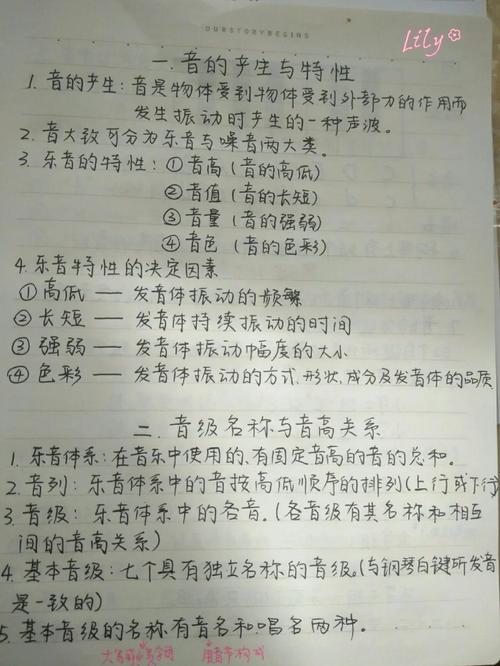 OURSTORYBEGINS
Lily
一.音的产生与特性
1.音的产生:音是物体受到物体受到外部力的作用而
发生振动时产生的一种声波。
2.音大致可分为乐音与噪音两大类。
3.乐音的特性:①音高(音的高低)
②音值(音的长短)
③音量(音的强弱)
④音色(音的色彩)
4.乐音特性的决定因素
①高低——发音体振动的频繁
②长短——发音体持续振动的时间
③强弱——发音体振动幅度的大小
④色彩——发音体振动的方式.形状.成分及发音体的品质
二.音级名称与音高关系
1.乐音体系:在音乐中使用的、有固定音高的音的总和。
2.音列:乐音体系中的音按高低顺序的排列(上行或下行)
3.音级:乐音体系中的各音。(各音级有其名称和相互
间的音高关系)
4.基本音级:七个具有独立名称的音级。(与钢琴白键所发音
是一致的)
5.基本音级的名称有音名和唱名两种。